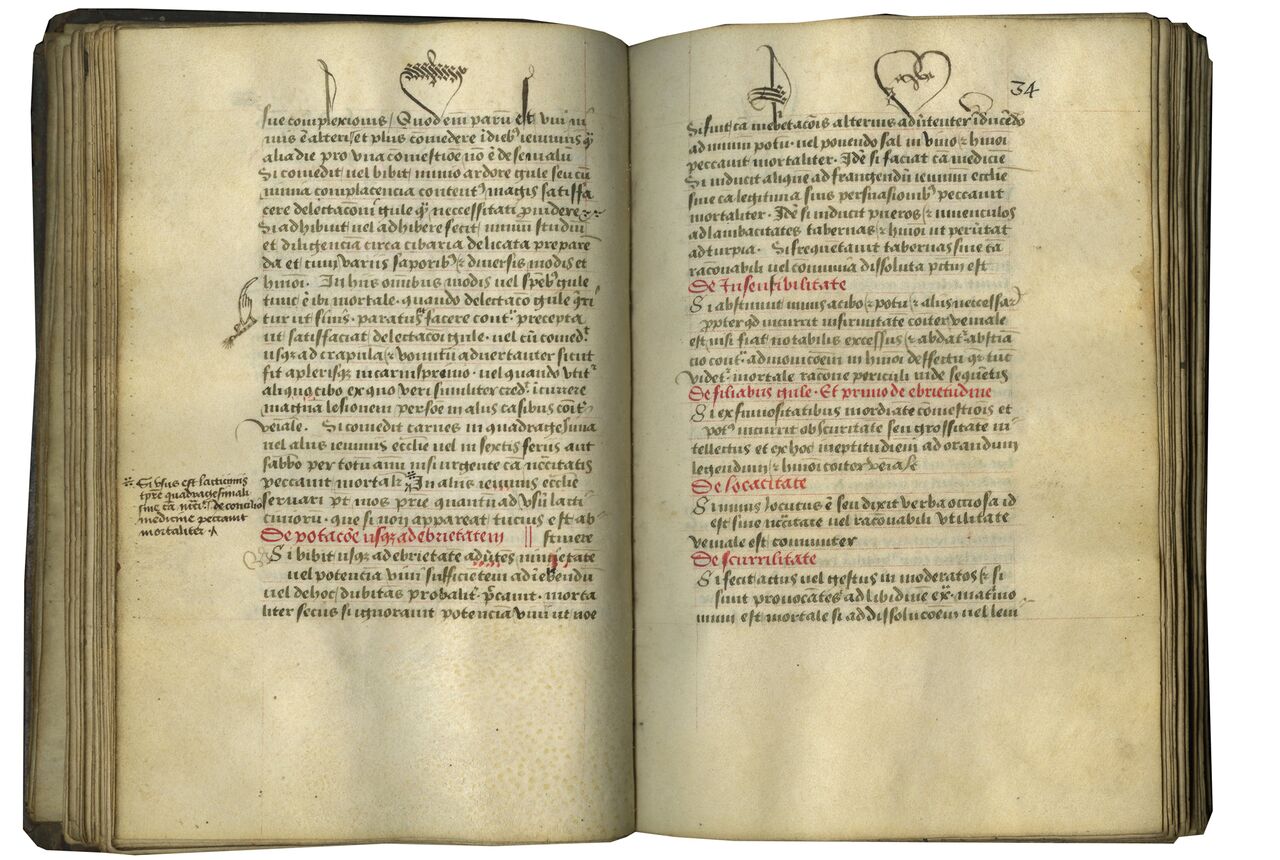 sue complexionis / Quod em̄ paru est vni ni
mis ē alteri / et plus comedere ī dieb' ieiunijs q̄
alia die pro vna comestiōe nō ē de se malū
Si comedit uel bibit nimio ardore gule seu cū
nimia complacencia content' magis satisfa
cere delectacōni gule q̄ neccessitati prouidere
Si adhibuit uel adhibere fecit nimiu studiu
et diligencia circa cibaria delicata prepare
da et cum varijs saporib' (et diuersis modis et
hmoi . In hijs omibus modis uel spēb' gule
tunc ē ibi mortale . quando delectaco gule q̄ri
tur ut finis . paratus facere cont̄ precepta
ut satisfaciat delectacōi gule . uel cū comed̄t
usq ad crapula (et vomitū aduertanter sicut
fit a plerisq in carnispreuio . uel quando vtit
aliquo cibo ex quo veri similiter cred ī currere
magna lesionem persoē in alijs casibus coit
veiale . Si comedit carnes in quadragesima
uel alijs ieiunijs ecclie uel in sextis ferijs aut
sabbo per totu annū nisi urgente cā nccitatis
peccauit mortalr In alijs ieiunijs ecclie
seruari pt mos prie quantū ad vsū lacti
cinioru . que si non appareat tucius est ab
De potacōe usq ad ebrietatem || stinere
Si bibit usq ad ebrietate adūtes nimietate
uel potencia vini sufficietem ad iebriendū
uel de hoc / dubitas probalit . pccauit . morta
liter secus si ignorauit potencia vini ut noe
Si vsus est lacticinijs
tpre quadragesimali
sine cā de concilio
medicine peccauit
mortaliter
34
Si fuit cā inebriacōis alterius adūtenter īducēdo
ad nimiu potu . uel ponendo sal in vino (et hmoi
peccauit mortaliter . Idē si faciat cā medicie
Si inducit aliquē ad frangendū ieiuniu ecclie
sine cā legitima suis persuasionib' peccauit
mortaliter . Idē si inducit pueros (et iuuenculos
ad lambacitates tabernas (et hmoi ut perūtat
ad turpia . Si frequetauit tabernas sine cā
racōnabili uel conuiuia dissoluta pctm est
De Insensibilitate
Si abstinuit nimis a cibo (et potu (et alijs neccessar
propter qd incurrit infirmitate coiter veniale
est nisi fiat notabilis excessus (et abdat abstīa
cio cont̄ admonicoem in hmoi deffectu q̄ tuc
videt mortale racone periculi vide sequetis
De filiabus gule . Et primo de ebrietudine
Si ex fumositatibus inordiate comestiois et
pot' incurrit obscuritate seu grossitate in
tellectus et ex hoc ineptitudiem ad orandum
legendum (et hmoi coitor veiale
De locacitate
Si nimis locutus ē seu dixit verba occiosa id
est sine nccitate uel racōnabili vtilitate
veniale est communiter
De scurrilitate
Si fecit actus uel gestus in moderatos (et si
sunt prouocātes ad libidine ex . matrio
nium est mortale si ad dissolucoem uel leui